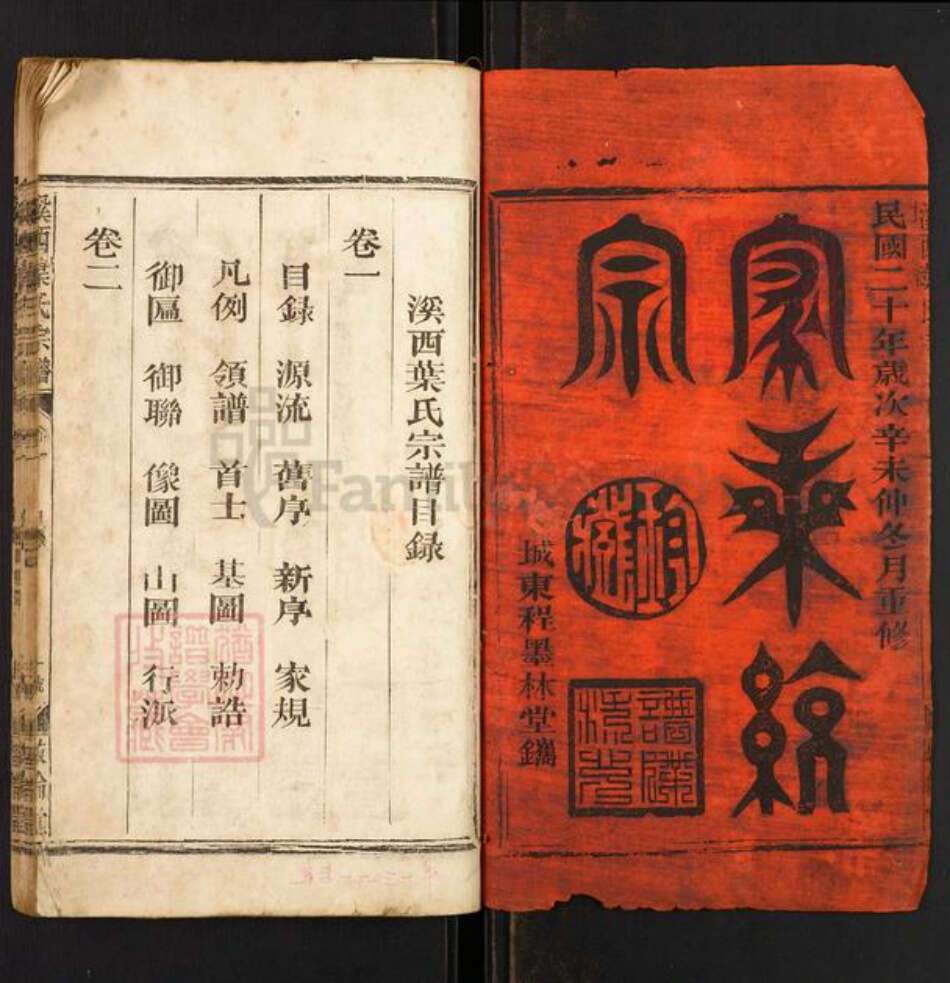 民國二十年歲次辛未仲冬月重修
家乘統
宗
譜牒流光
城東程墨林堂鐫
溪西葉氏宗譜目録
卷一
目録 源流 舊序 新序 家規
凡例 領譜 首士 基圖 勅誥
御區 御聯 像圖 山圖 行派
卷二
溪西葉氏宗譜